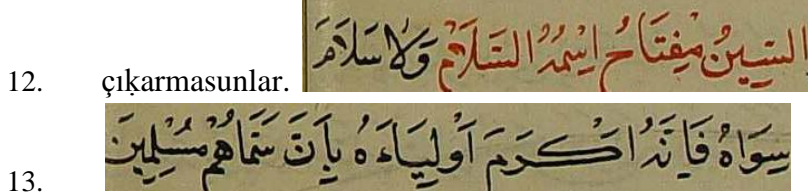 12. çıkarmasunlar. السِّينُ مِفْتَاحُ اِسْمُهُ السَّلَامُ وَلَا سَلَامَ
13. سِوَاهُ فَاِنَّهُ اَكْرَمَ اَوْلِيَاءَهُ بِاَنَّ سَمَّاهُمْ مُسْلِمِينَ